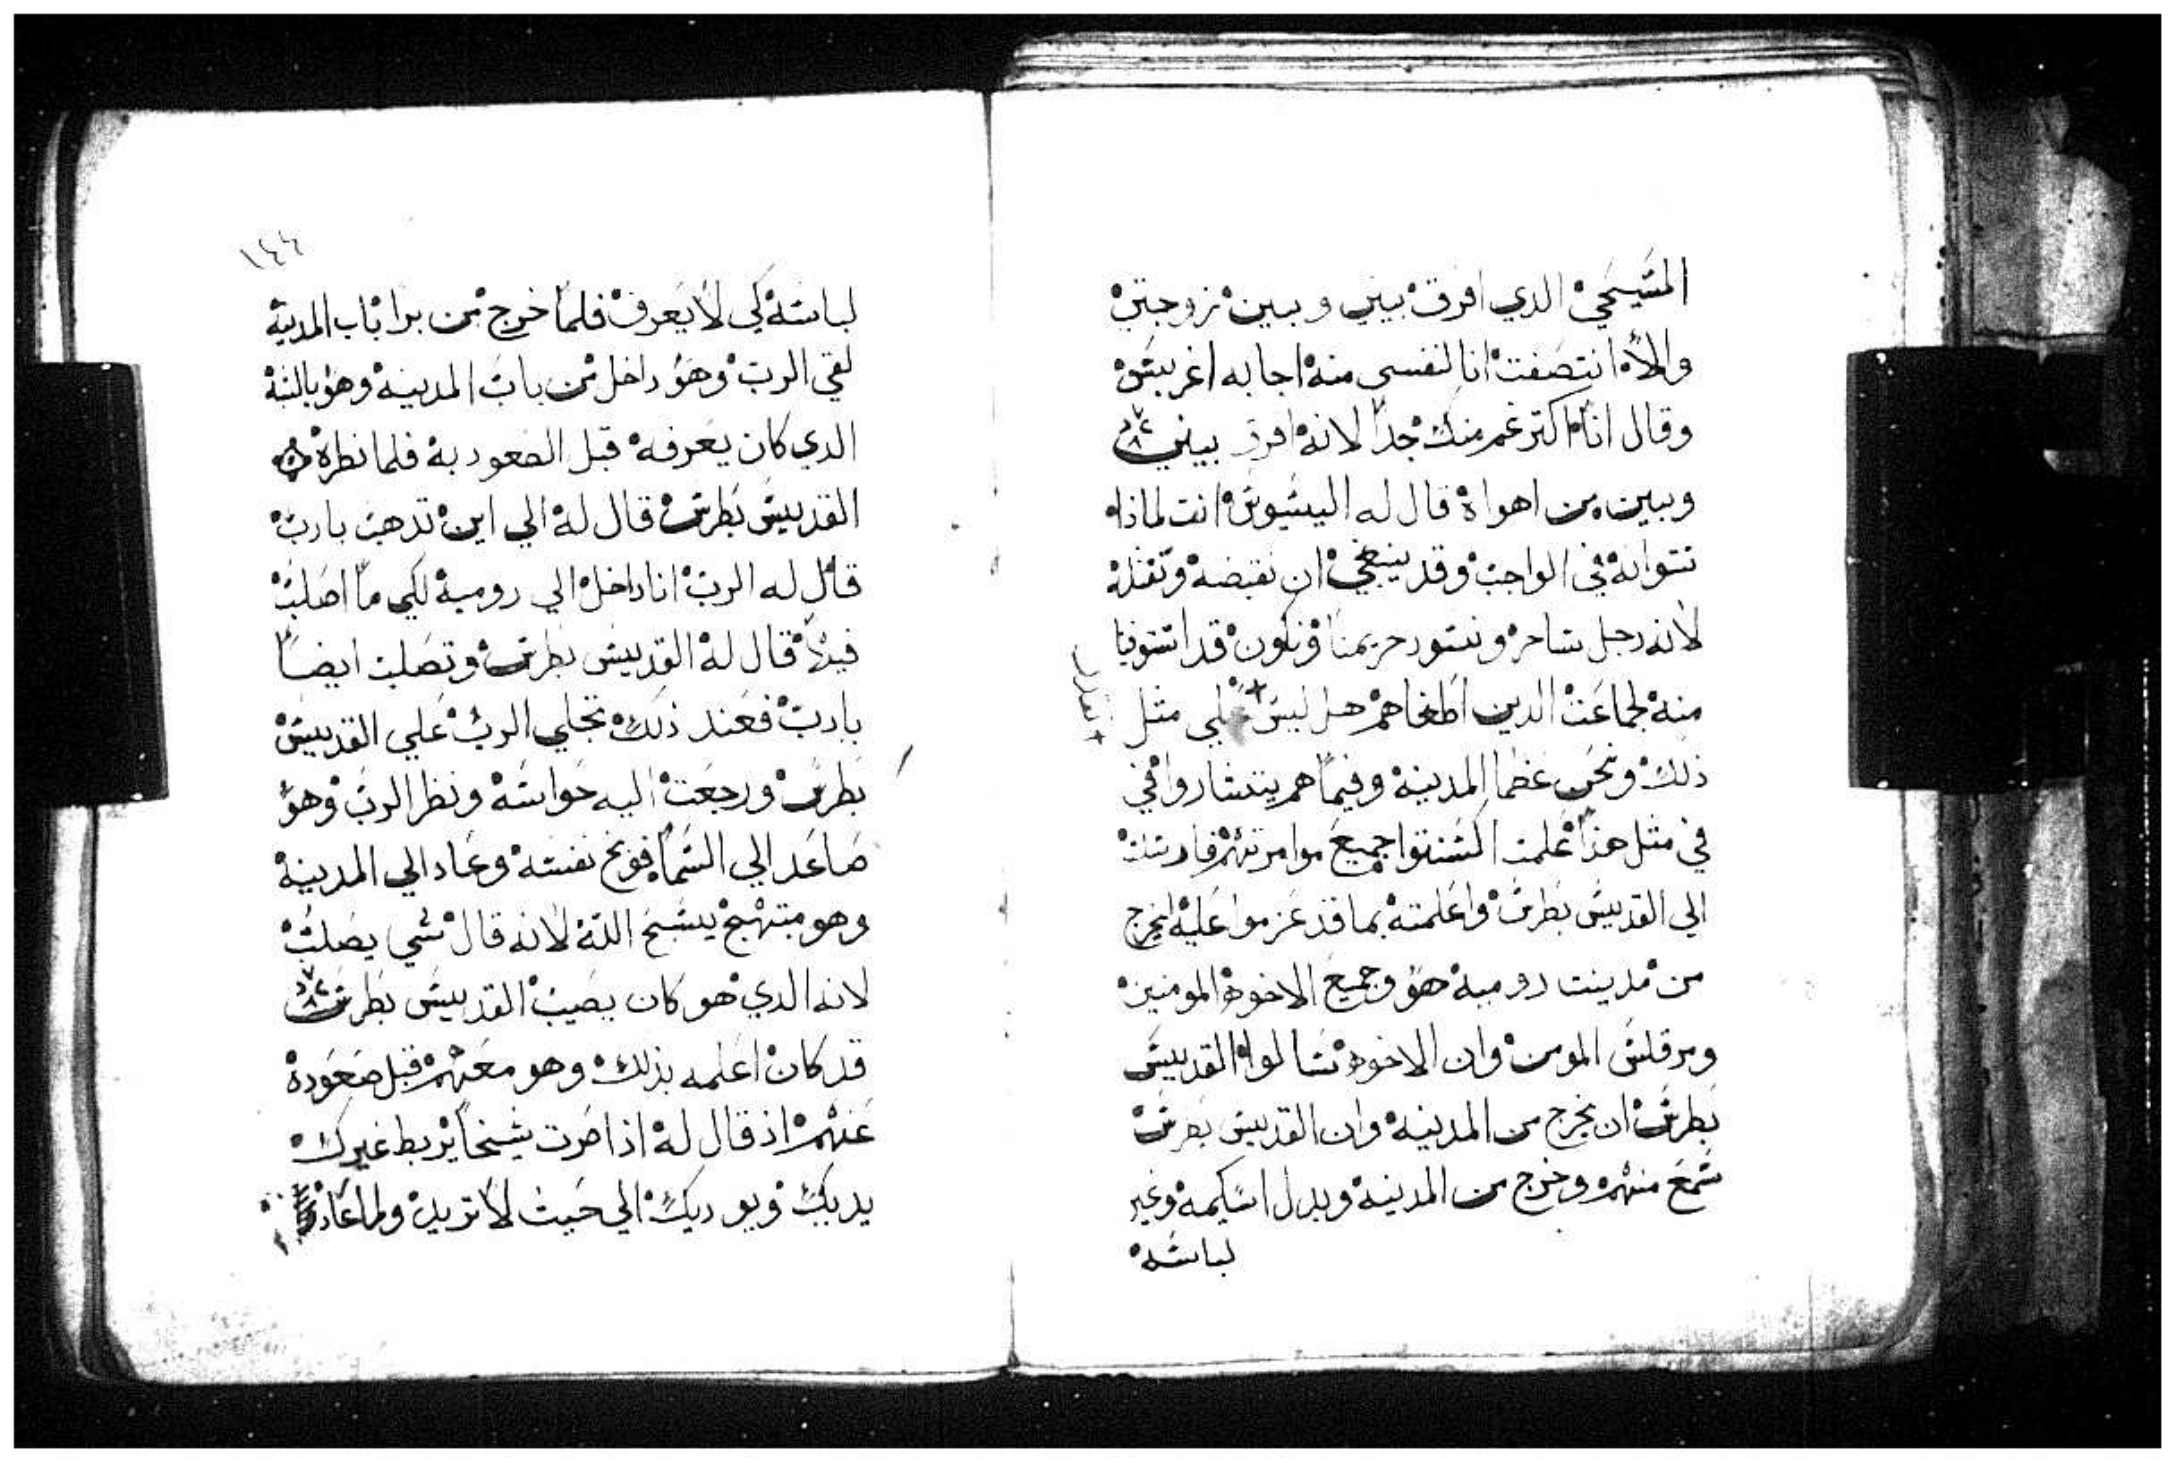 المسيحي الدي افرق بيني وبين زوجتي
والا انتصفت انا لنفسي منه اجابه اغريبس
وقال انا اكتر غم منك جدا لانه افرق بيني
وبين من اهواه قال له اليسيوس انت لماذا
تتوانه في الواجب وقد ينبغي ان نقبضه ونقتله
لانه رجل ساحر ونستور حريمنا ونكون قد اشتوفينا
منه لجماعت الدين اطغاهم هل ليس علي مثل
ذلك ونحن عظما المدينه وفيما هم يتشاروا في
في مثل هذا علمت اكسنتوا جميع موامرتهم فارسلت
الي القديس بطرس واعلمته بما قد عزموا عليه ليخرج
من مدينت روميه هو وجميع الاخوه المومنين
ومرقلس المومن وان الاخوه سالوا القديس
بطرس ان يخرج من المدينه وان القديس بطرس
سمع منهم وخرج من المدينه وبدل اسكيمه وغير
لباسه
١٤٤
لباسه لكي لا يعرف فلما خرج من برا باب المدينه
لقي الرب وهو داخل من باب المدينه وهو بالشبه
الدي كان يعرفه قبل الصعود به فلما نظره
القديس بطرس قال له الي اين تدهب يارب
قال له الرب انا داخل الي روميه لكي ما اصلب
فيها قال له القديس بطرس وتصلب ايضا
يارب فعند ذلك تجلي الرب علي القديس
بطرس ورجعت اليه حواسه ونظر الرب وهو
صاعد الي السما فوبخ نفسه وعاد الي المدينه
وهو مبتهج يسبح الله لانه قال شي يصلب
لانه الدي هو كان يصيب القديس بطرس
قد كان اعلمه بذلك وهو معهم قبل صعوده
عنهم اذ قال له اذا صرت شيخا يربط غيرك
يديك ويوديك الي حيت لا تريد ولما عاد